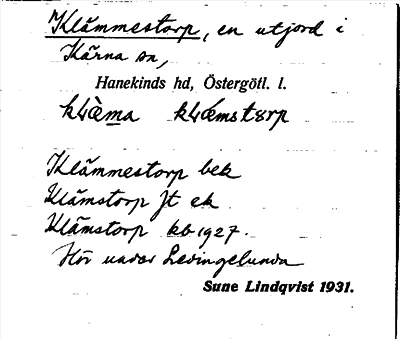 Klämmestorp, en utjord i
Kärna sn,
Hanekinds hd, Östergötl. l.
Klämmestorp bek
Klämstorp Jt ek
Klämstorp kb 1927.
Hör under Levingelunda
Sune Lindqvist 1931.